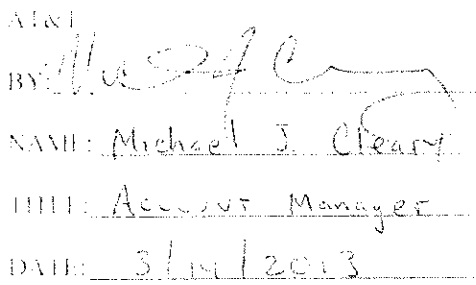 AT&T
BY:
NAME: Michael J. Cleary
TITLE: Account Manager
DATE: 3/14/2013